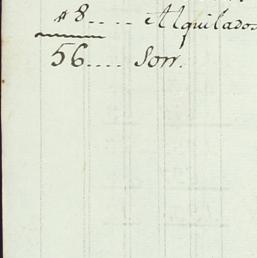 18.... Alquilados
56.... Son.